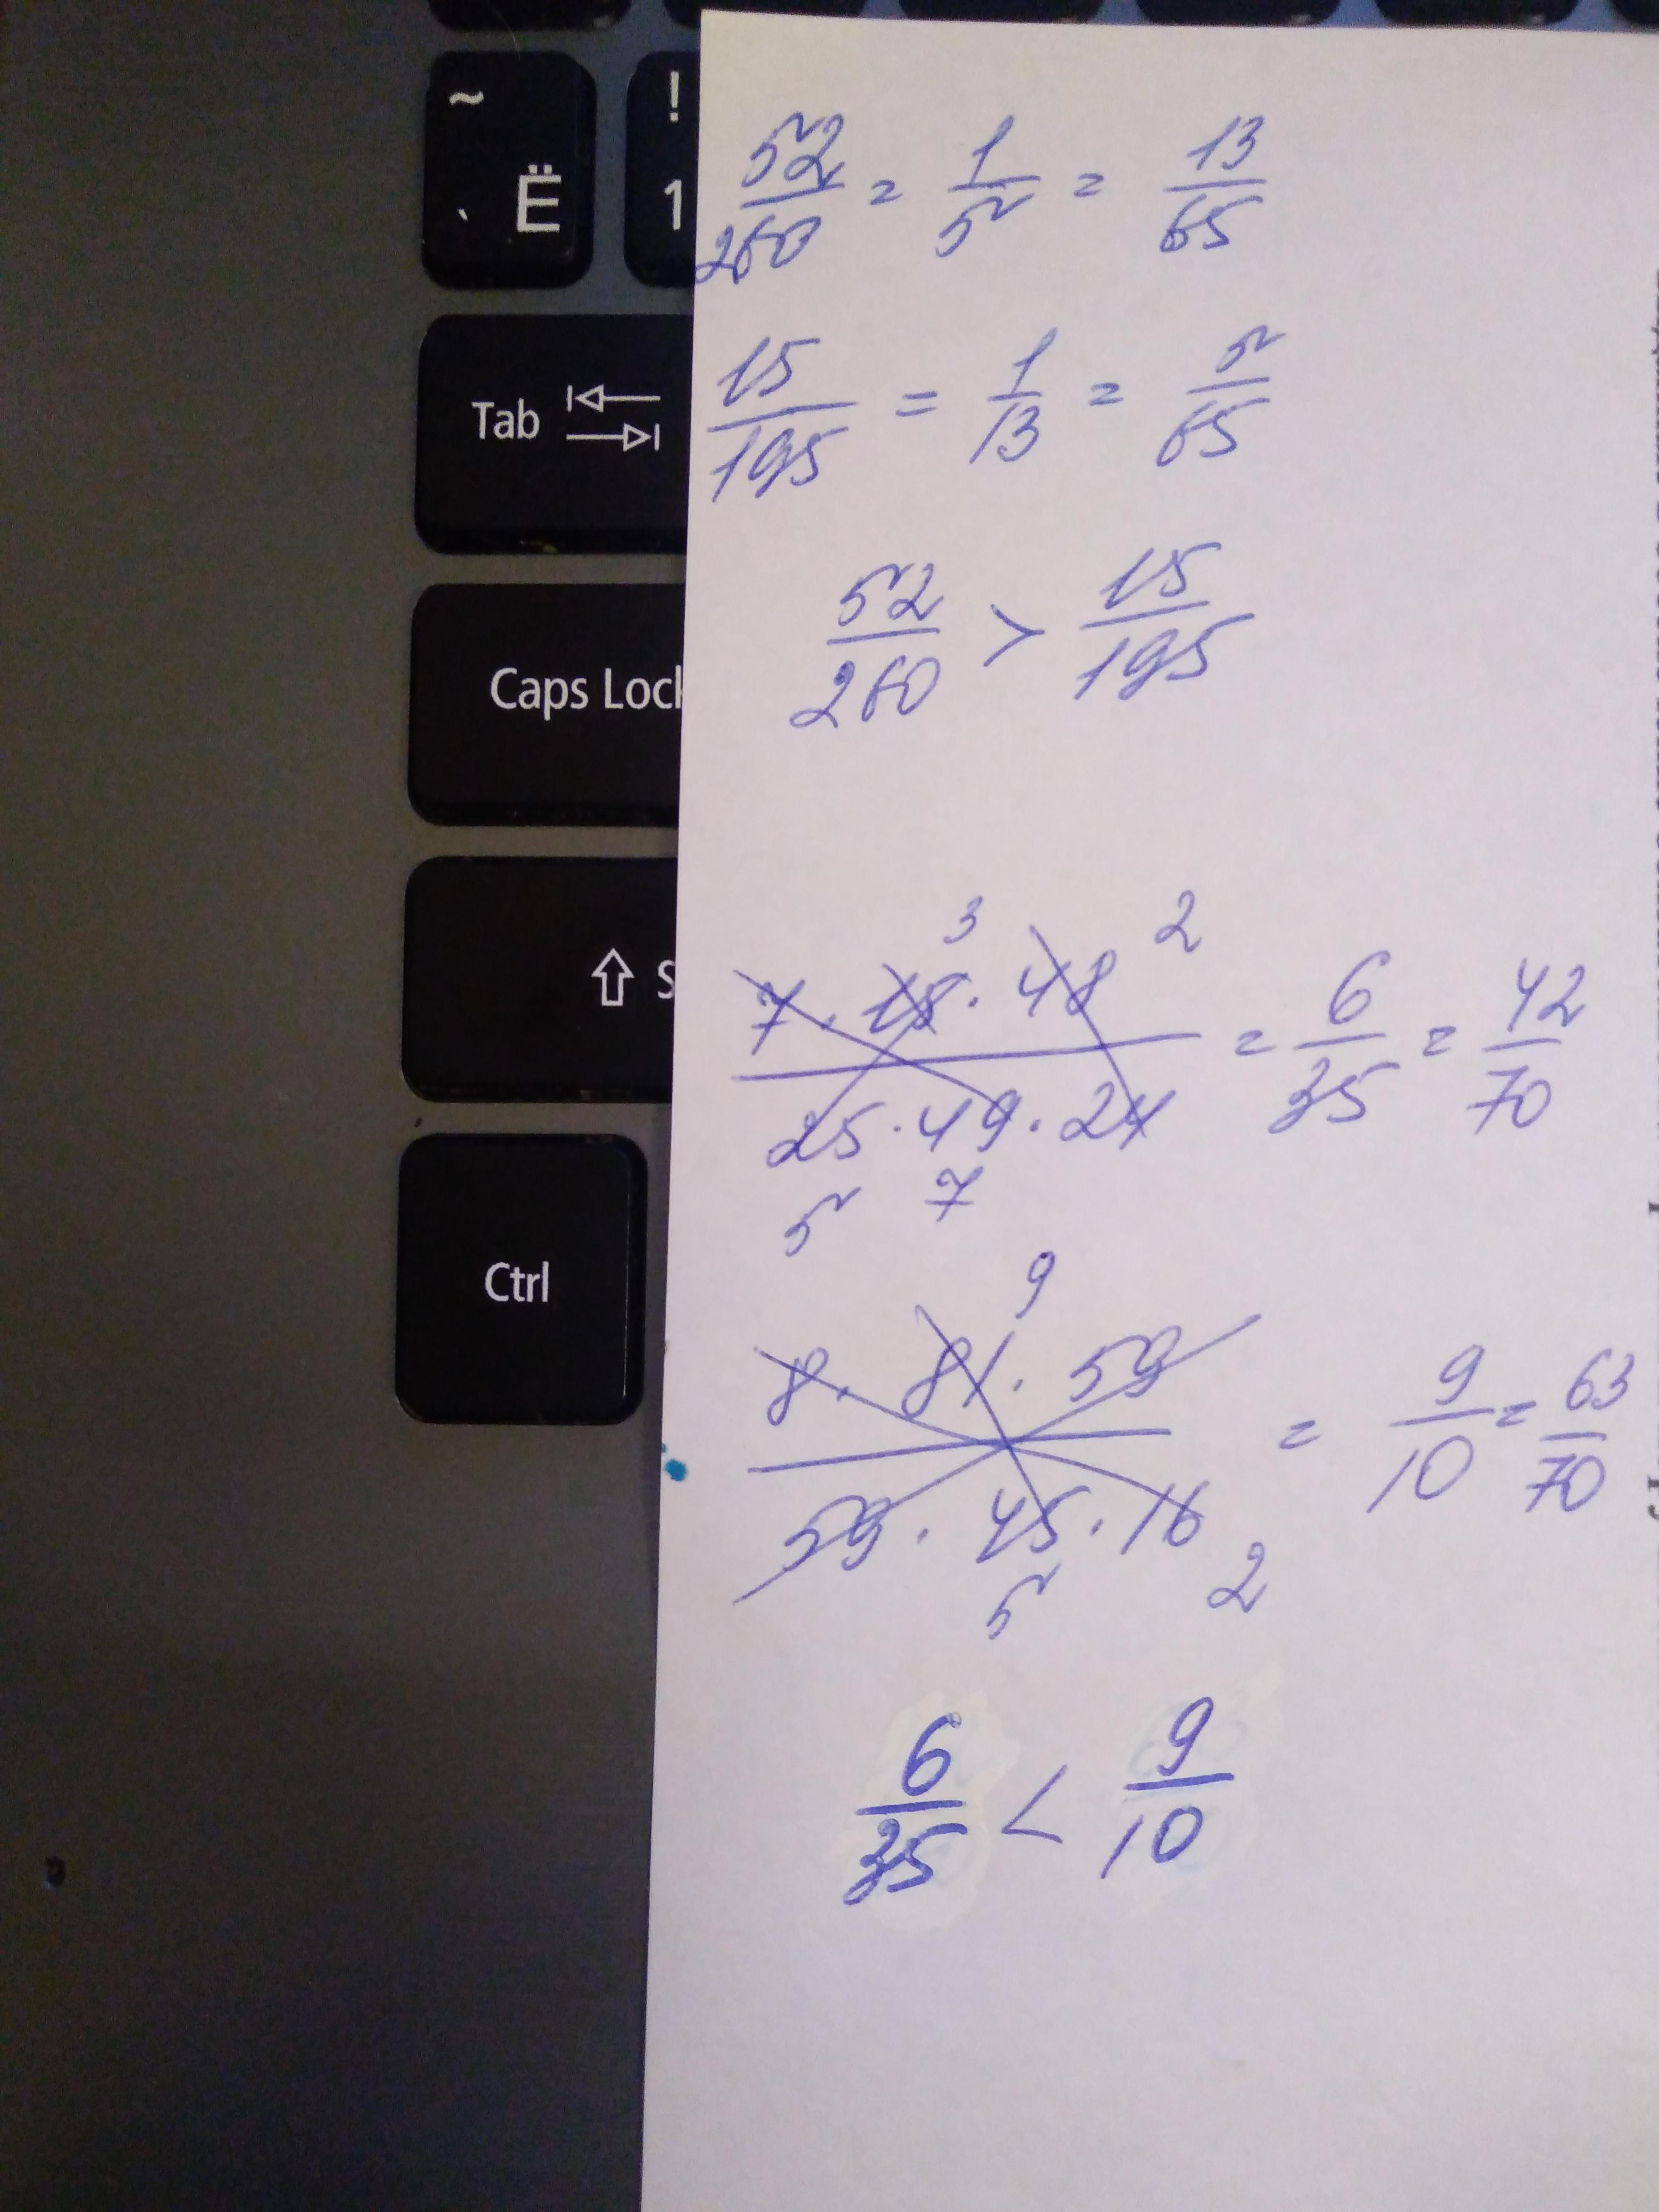 ~
` Ё
!
1
Tab
Caps Loc
S
Ctrl
52/260 = 1/5 = 13/65
15/195 = 1/13 = 5/65
52/260 > 15/195
3 2
7 · 15 · 48 / 25 · 49 · 24 = 6/35 = 42/70
5 7
9
8 · 81 · 59 / 59 · 45 · 16 = 9/10 = 63/70
5 2
6/35 < 9/10